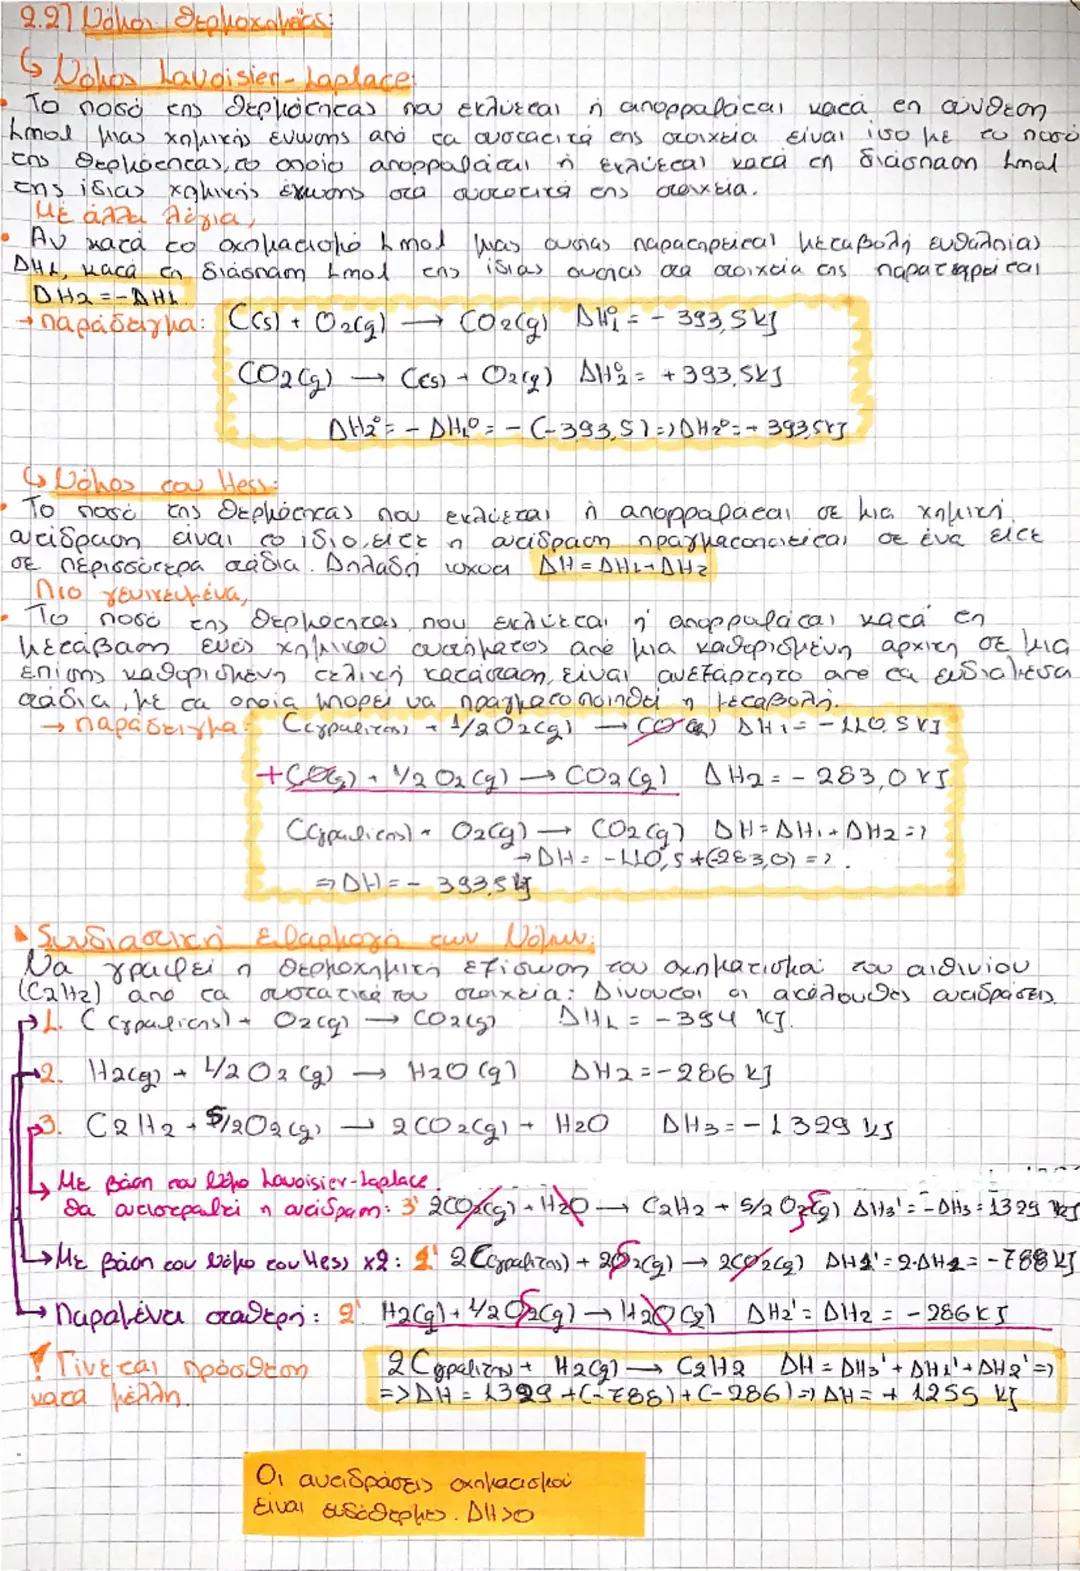 2.2] Νόμοι Θερμοχημείας:
↳ Νόμος Lavoisier-Laplace:
• Το ποσό της θερμότητας που εκλύεται ή απορροφάται κατά τη σύνθεση
1mol μιας χημικής ένωσης από τα συστατικά της στοιχεία είναι ίσο με το ποσό
της θερμότητας, το οποίο απορροφάται ή εκλύεται κατά τη διάσπαση 1mol
της ίδιας χημικής ένωσης στα συστατικά της στοιχεία.
Με άλλα λόγια,
• Αν κατά το σχηματισμό 1mol μιας ουσίας παρατηρείται μεταβολή ενθαλπίας
ΔΗ1, κατά τη διάσπαση 1mol της ίδιας ουσίας στα στοιχεία της παρατηρείται
ΔΗ2=-ΔΗ1.
→ παράδειγμα: C(s) + O2(g) → CO2(g) ΔΗ1° = - 393,5kJ
CO2(g) → C(s) + O2(g) ΔΗ2° = +393,5kJ
ΔΗ2° = - ΔΗ1° = - (-393,5) => ΔΗ2° = + 393,5kJ
↳ Νόμος του Hess:
• Το ποσό της θερμότητας που εκλύεται ή απορροφάται σε μια χημική
αντίδραση είναι το ίδιο, είτε η αντίδραση πραγματοποιείται σε ένα είτε
σε περισσότερα στάδια. Δηλαδή ισχύει ΔΗ = ΔΗ1+ΔΗ2
Πιο γενικευμένα,
• Το ποσό της θερμότητας που εκλύεται ή απορροφάται κατά τη
μετάβαση ενός χημικού συστήματος από μια καθορισμένη αρχική σε μια
επίσης καθορισμένη τελική κατάσταση, είναι ανεξάρτητο από τα ενδιάμεσα
στάδια, με τα οποία μπορεί να πραγματοποιηθεί η μεταβολή.
→ παράδειγμα: C(γραφίτης) + 1/2O2(g) → CO(g) ΔΗ1 = - 110,5 kJ
+CO(g) + 1/2 O2(g) → CO2(g) ΔΗ2 = - 283,0 kJ
C(γραφίτης) + O2(g) → CO2(g) ΔΗ=ΔΗ1+ΔΗ2 =>
→ΔΗ = -110,5+(-283,0) =>.
=> ΔΗ = - 393,5kJ
Συνδιαστική εφαρμογή των Νόμων:
Να γραφεί η θερμοχημική εξίσωση του σχηματισμού του αιθινίου
(C2H2) από τα συστατικά του στοιχεία: Δίνονται οι ακόλουθες αντιδράσεις
1. C(γραφίτης) + O2(g) → CO2(g) ΔΗ1 = -394 kJ.
2. H2(g) + 1/2 O2(g) → H2O(g) ΔΗ2=-286 kJ
3. C2H2 + 5/2O2(g) → 2CO2(g) + H2O ΔΗ3=-1329 kJ
↳ Με βάση τον Νόμο Lavoisier-Laplace
θα αντιστραφεί η αντίδραση: 3' 2CO2(g) + H2O → C2H2 + 5/2 O2(g) ΔΗ3' = -ΔΗ3 = 1329 kJ
→Με βάση τον Νόμο του Hess x2: 1' 2C(γραφίτης) + 2O2(g) → 2CO2(g) ΔΗ1' = 2·ΔΗ1 = -788 kJ
→ Παραμένει σταθερή: 2' H2(g) + 1/2O2(g) → H2O(g) ΔΗ2' = ΔΗ2 = -286kJ
! Γίνεται πρόσθεση
κατά μέλη.
2C γραφίτης + H2(g) → C2H2 ΔΗ = ΔΗ3' + ΔΗ1' + ΔΗ2' =>
=> ΔΗ = 1329 +(-788)+(-286) => ΔΗ = + 1255 kJ
Οι αντιδράσεις σχηματισμού
είναι ενδόθερμες. ΔΗ>0